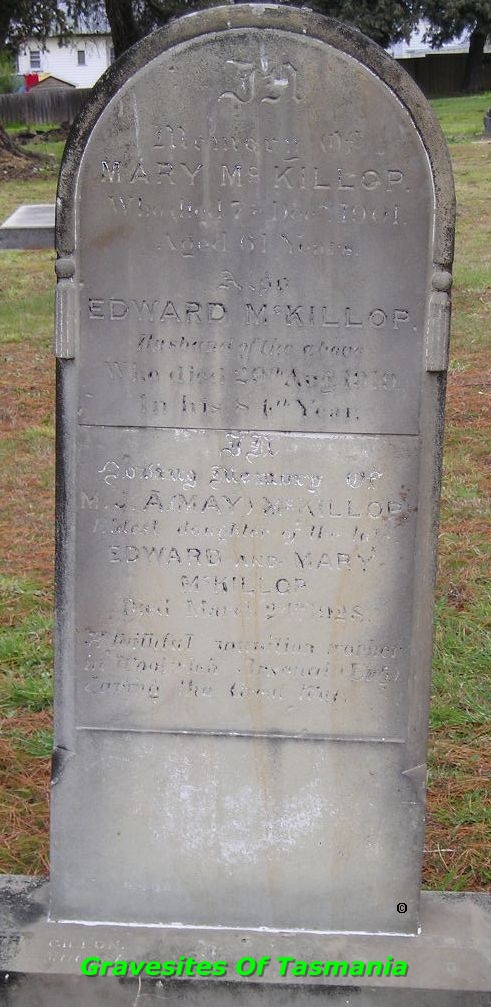 IN
Memory Of
MARY McKILLOP.
Who died 7th Decr 1901.
Aged 61 Years.
Also
EDWARD McKILLOP.
Husband of the above
Who died 29th Aug. 1919.
In his 84th Year.
IN
Loving Memory Of
M. J. A. (MAY) McKILLOP.
Eldest daughter of the late
EDWARD AND MARY
McKILLOP
Died March 1928.
A faithful munition worker
At Woolwich Arsenal (Eng)
during the Great War.
©
GILLON.
Gravesites Of Tasmania